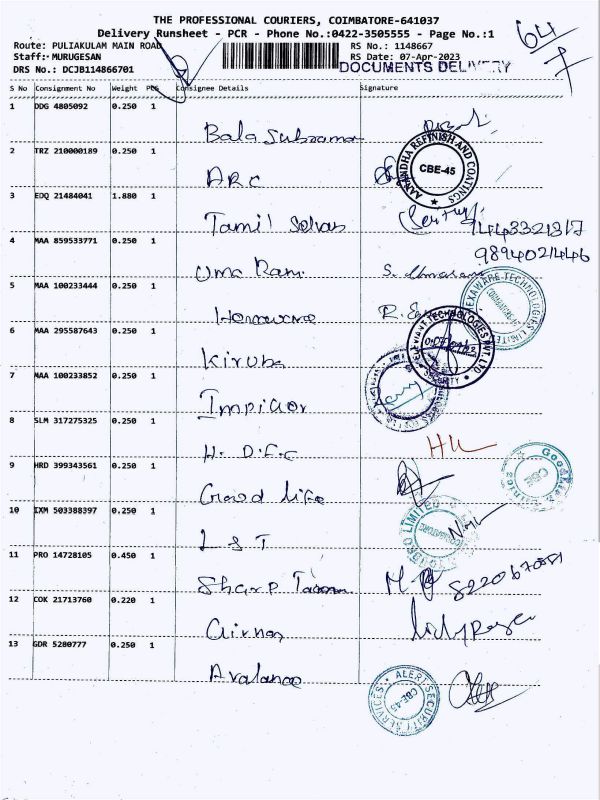 THE PROFESSIONAL COURIERS, COIMBATORE-641037
Delivery Runsheet - PCR - Phone No.:0422-3505555 - Page No.:1
Route: PULIAKULAM MAIN ROAD RS No.: 1148667
Staff: MURUGESAN RS Date: 07-Apr-2023
DRS No.: DCJB114866701 DOCUMENTS DELIVERY
64
7
S No Consignment No Weight PCS Consignee Details Signature
1 DDG 4805092 0.250 1
Bala Subrama
2 TRZ 210000189 0.250 1
ARC
AANINDHA REFINISH AND COATINGS CBE-45
3 EDQ 21484041 1.880 1
Tamil Selvan
9894021446
4 MAA 859533771 0.250 1
Uma Rani S. Umarani
5 MAA 100233444 0.250 1
HEXAWARE TECHNOLOGIES LIMITED
6 MAA 295587643 0.250 1
Kiruba
TECHNOLOGIES PVT. LTD SECURITY
7 MAA 100233852 0.250 1
Impiger
8 SLM 317275325 0.250 1
H. D.F.C
9 HRD 399343561 0.250 1
Good life
10 IXM 503388397 0.250 1
L & T
LIMITED
11 PRO 14728105 0.450 1
Sharp
12 COK 21713760 0.220 1
13 GDR 5280777 0.250 1
Avalance
ALERT SECURITY SERVICES CBE-45